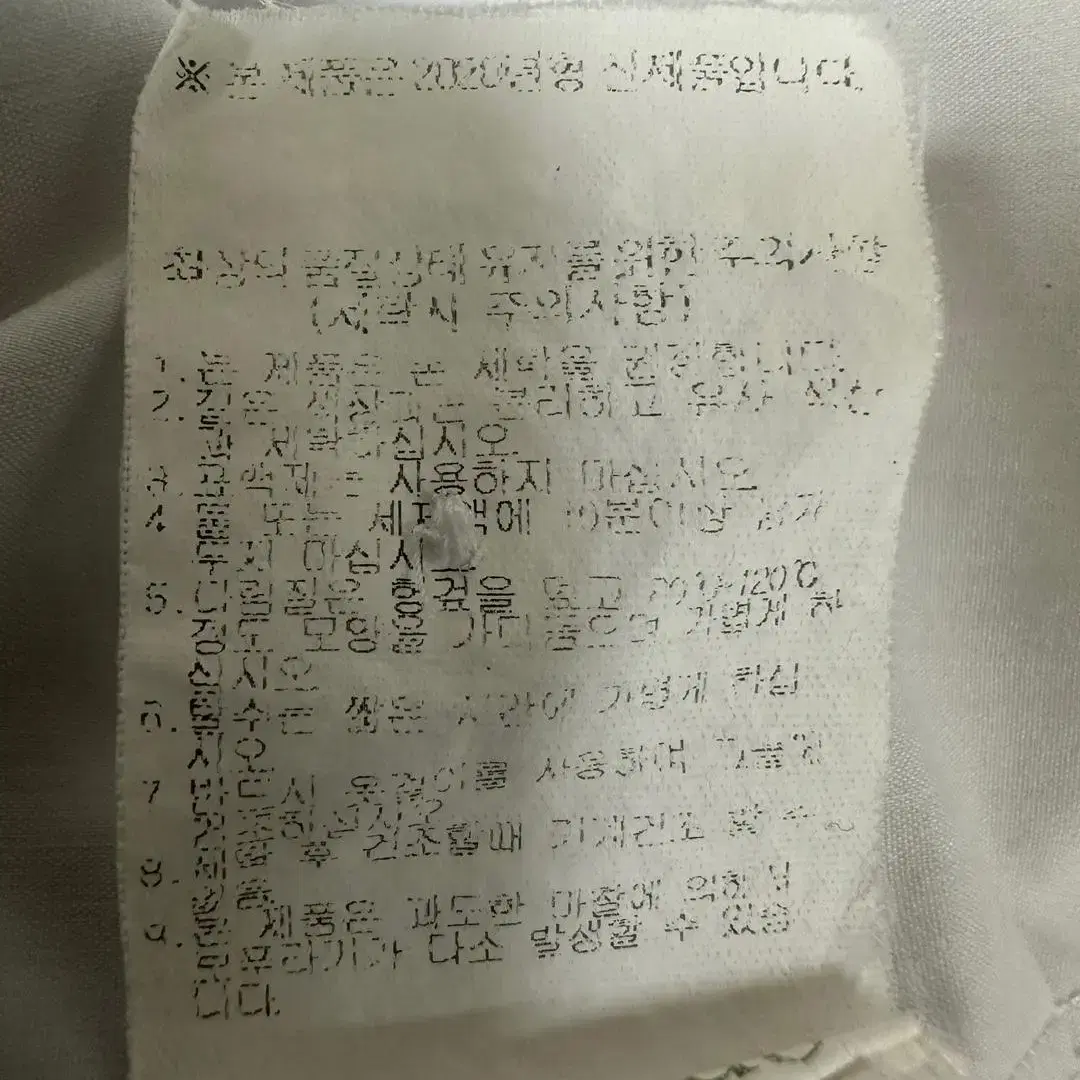 ※ 본 제품은 2020년형 신제품입니다.
최상의 품질상태 유지를 위한 주의사항
(세탁시 주의사항)
1. 본 제품은 손 세탁을 권장합니다.
2. 짙은 색상과는 분리하고 유사 색상
과 세탁하십시오.
3. 표백제는 사용하지 마십시오
4 물 또는 세제액에 10분이상 담가
두지 마십시오
5. 다림질은 헝겊을 덮고 120℃
정도 모양을 가다듬으며 가볍게 하
십시오
6. 탈수는 짧은 시간에 가볍게 하십
시오
7 반드시 옷걸이를 사용하여 그늘에
건조하십시오
8. 세탁 후 건조할때 기계건조 할 수
없음
9. 본 제품은 과도한 마찰에 의해서
보푸라기가 다소 발생할 수 있습
니다.